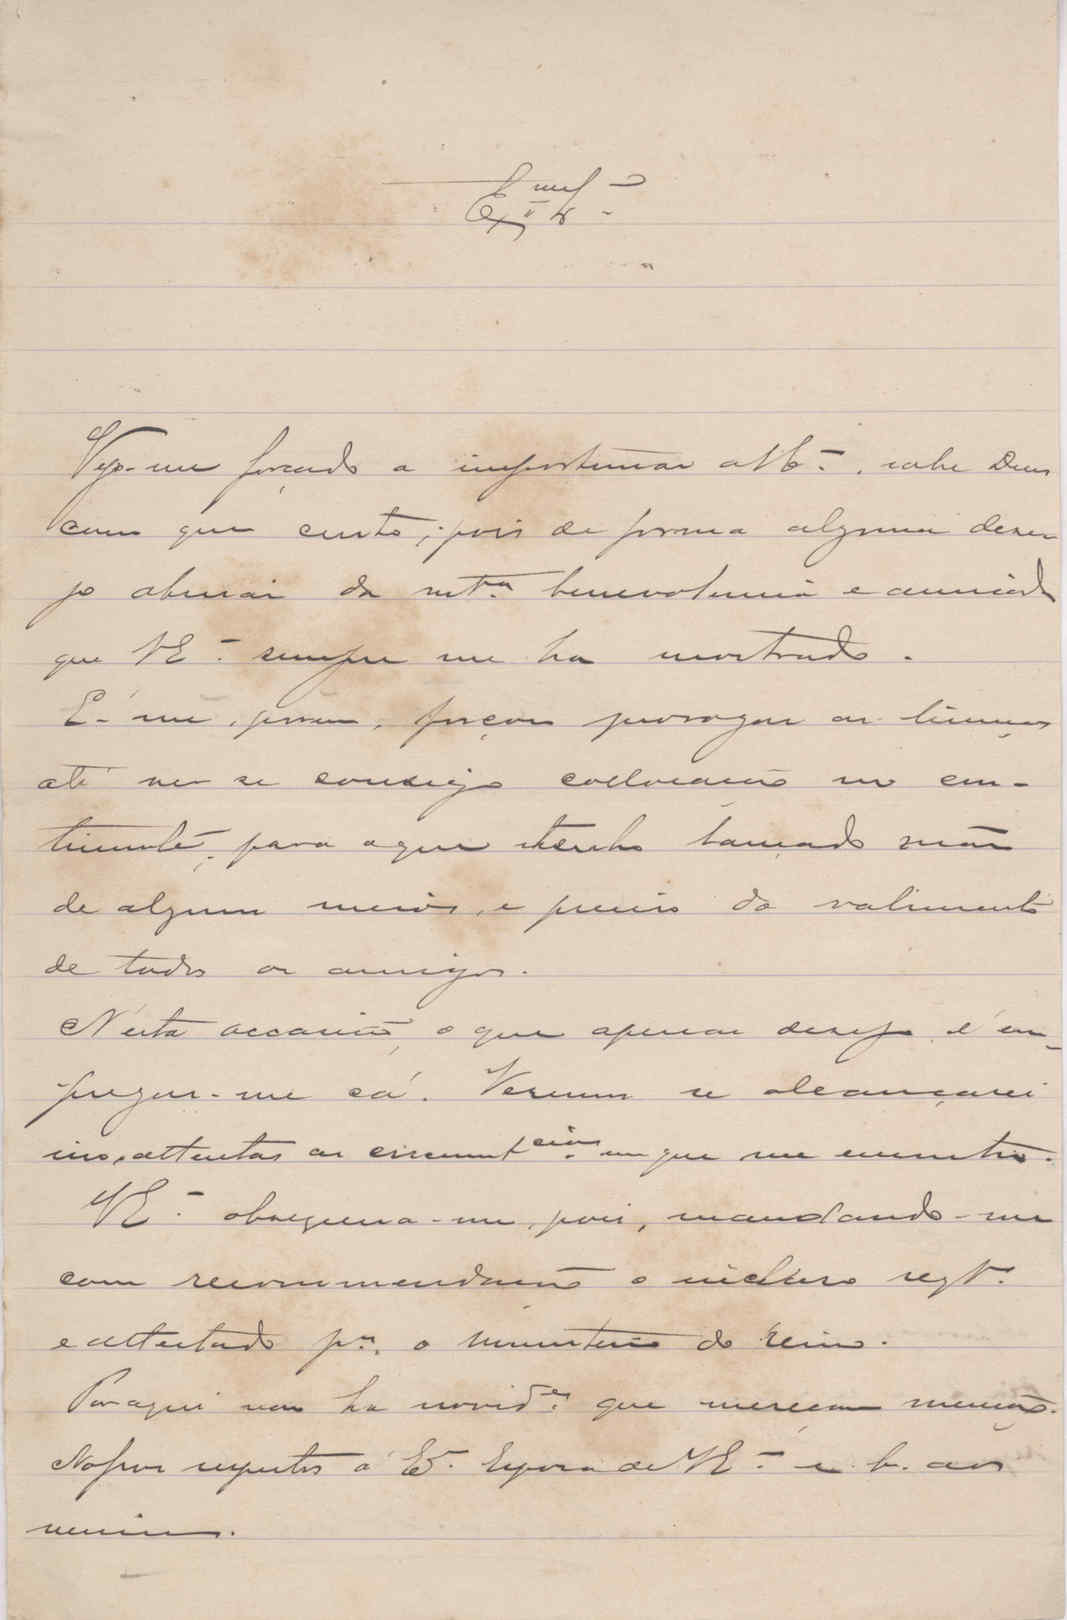 Vejo-me forçado a importunar a V E.ª, sabe Deus
com que custo; pois de forma alguma dese-
jo abusar da mt.ª benevolencia e amizade
que V E.ª sempre me ha mostrado.
É-me, porem, forçoso prorogar as licenças
até ver se consigo collocação no con-
tinente, para o que tenho lançado mão
de alguns meios, e preciso do valimento
de todos os amigos.
N'esta occasião, o que apenas desejo é em-
pregar-me cá. Veremos se alcançarei
isso, attentas as circumst.cias em que me encontro.
V E.ª obsequeia-me, pois, mandando-me
com recommendação o incluso reqt.º
e attestado p.ª o ministerio do reino.
Por aqui não ha novid.es que mereçam menção.
Nossos respeitos á E.ma Esposa de V E.ª e b. aos
meninos.